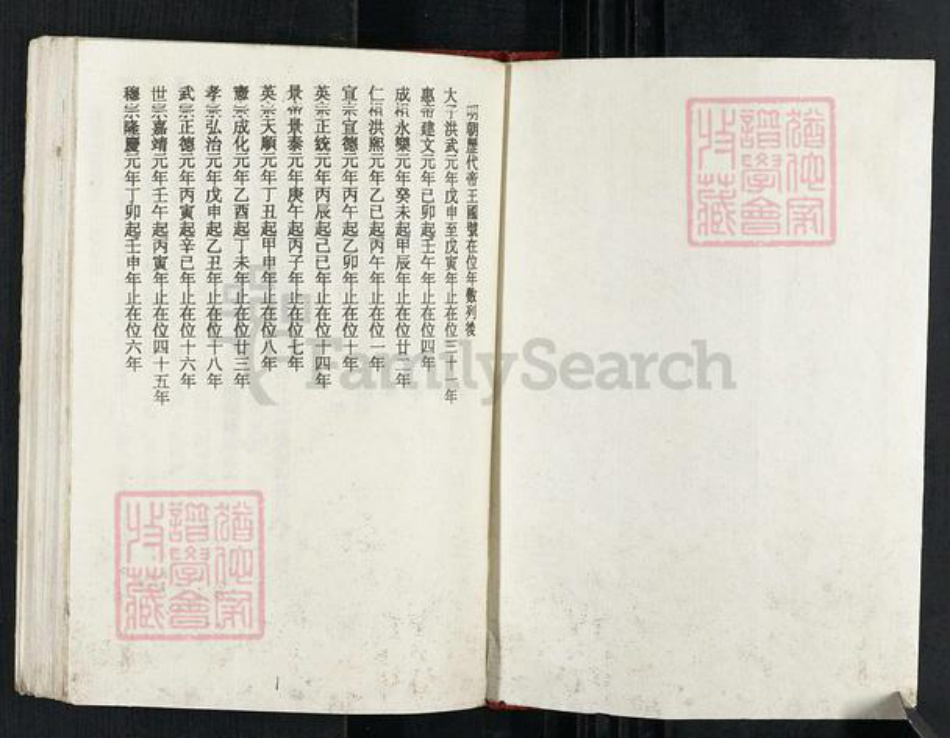 明朝歷代帝王國號在位年數列後
太子洪武元年戊申至戊寅年止在位三十一年
惠帝建文元年已卯起壬午年止在位四年
成祖永樂元年癸未起甲辰年止在位廿二年
仁祖洪熙元年乙已起丙午年止在位一年
宣宗宣德元年丙午起乙卯年止在位十年
英宗正統元年丙辰起己已年止在位十四年
景帝景泰元年庚午起丙子年止在位七年
英宗天順元年丁丑起甲申年止在位八年
憲宗成化元年乙酉起丁未年止在位廿三年
孝宗弘治元年戊申起乙丑年止在位十八年
武宗正德元年丙寅起辛已年止在位十六年
世宗嘉靖元年壬午起丙寅年止在位四十五年
穆宗隆慶元年丁卯起壬申年止在位六年
1
FamilySearch
譜學會
收藏
譜學會
收藏